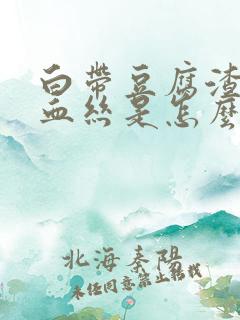 白带豆腐渣
血丝是怎么
北海秦阳
未经同意禁止转载